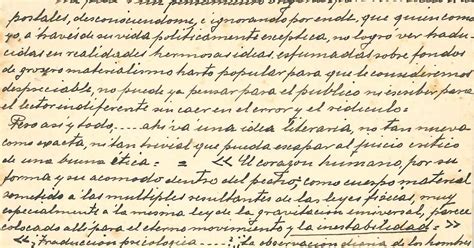 postales, desconociendome, é ignorando por ende, que quien como
yo, á través de su vida politicamente excéptica, no logró ver tradu-
cidas en realidades hermosas ideas, esfumadas sobre fondos
de grosero materialismo harto popular para que le consideremos
despreciable, no puede ya pensar para el publico ni escribir para
el lector indiferente sin caer en el error y el ridiculo=
Pero asi y todo,.... ahi vá una idea literaria, no tan nueva
como exacta, ni tan trivial que pueda escapar al juicio critico
de una buena ética:= = « El corazon humano, por su
forma y su acomodo dentro del pecho, como cuerpo material
sometido á las multiples resultantes de las leyes fisicas, muy
especialmente á la mesma ley de la gravitacion universal, parece
colocado allí para el eterno movimiento y la instabilidad= »
« Traduccion psicologica ....: La observacion diaria de los